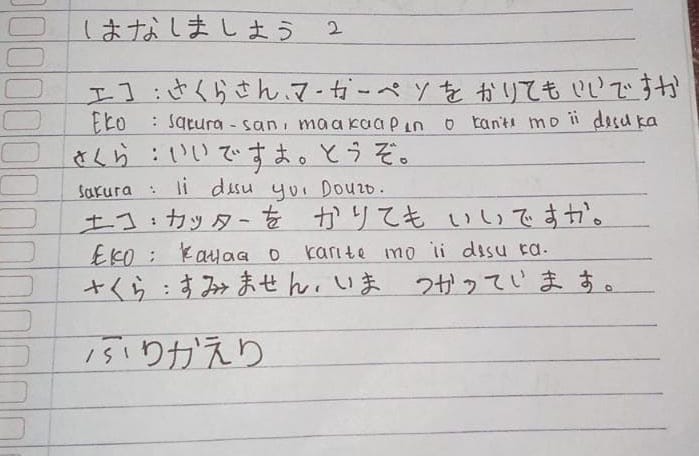 はなしましょう 2
エコ : さくらさん、マーガーペンを かりてもいいですか
EKO : sakura-san, maakaapen o karite mo ii desuka
さくら : いいですよ。とうぞ。
sakura : ii desu yo, Douzo.
エコ : カッターを かりても いいですか。
EKO : kattaa o karite mo ii desu ka.
さくら : すみません、いま つかっています。
ふりかえり